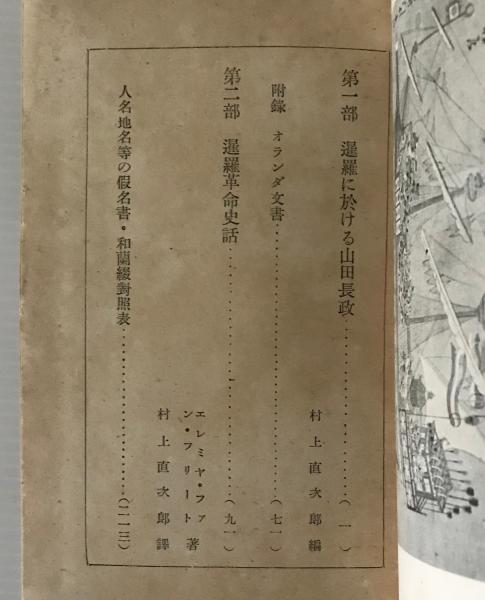 第一部　暹羅に於ける山田長政……………………(一)
村上直次郎編
附錄　オランダ文書……………………(七一)
第二部　暹羅革命史話……………………(九一)
エレミヤ・ファン・フリート著
村上直次郎譯
人名地名等の假名書・和蘭綴對照表……………………(二一三)